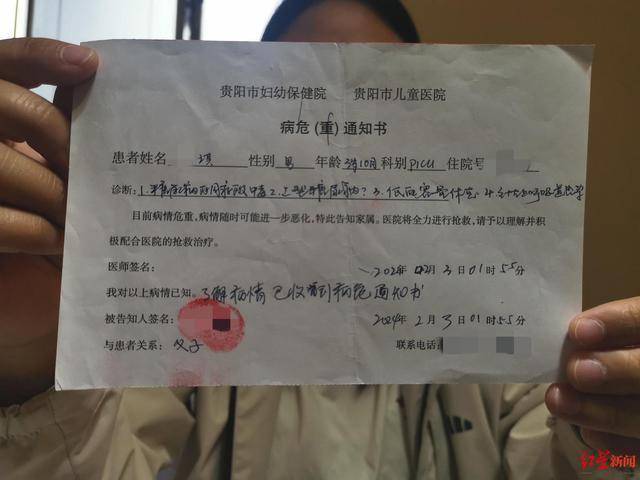 贵阳市妇幼保健院 贵阳市儿童医院
病危(重)通知书
患者姓名 琪 性别 男 年龄 3岁10月 科别 PICU 住院号
诊断: 1. 2. 3.低血容量性休克 4.
目前病情危重,病情随时可能进一步恶化,特此告知家属。医院将全力进行抢救,请予以理解并积
极配合医院的抢救治疗。
医师签名: 2024年 02月 3日 01时 55分
我对以上病情已知。了解病情 已收到病危通知书
被告知人签名: 2024年 2月 3日 01时 55分
与患者关系: 父子 联系电话
红星新闻